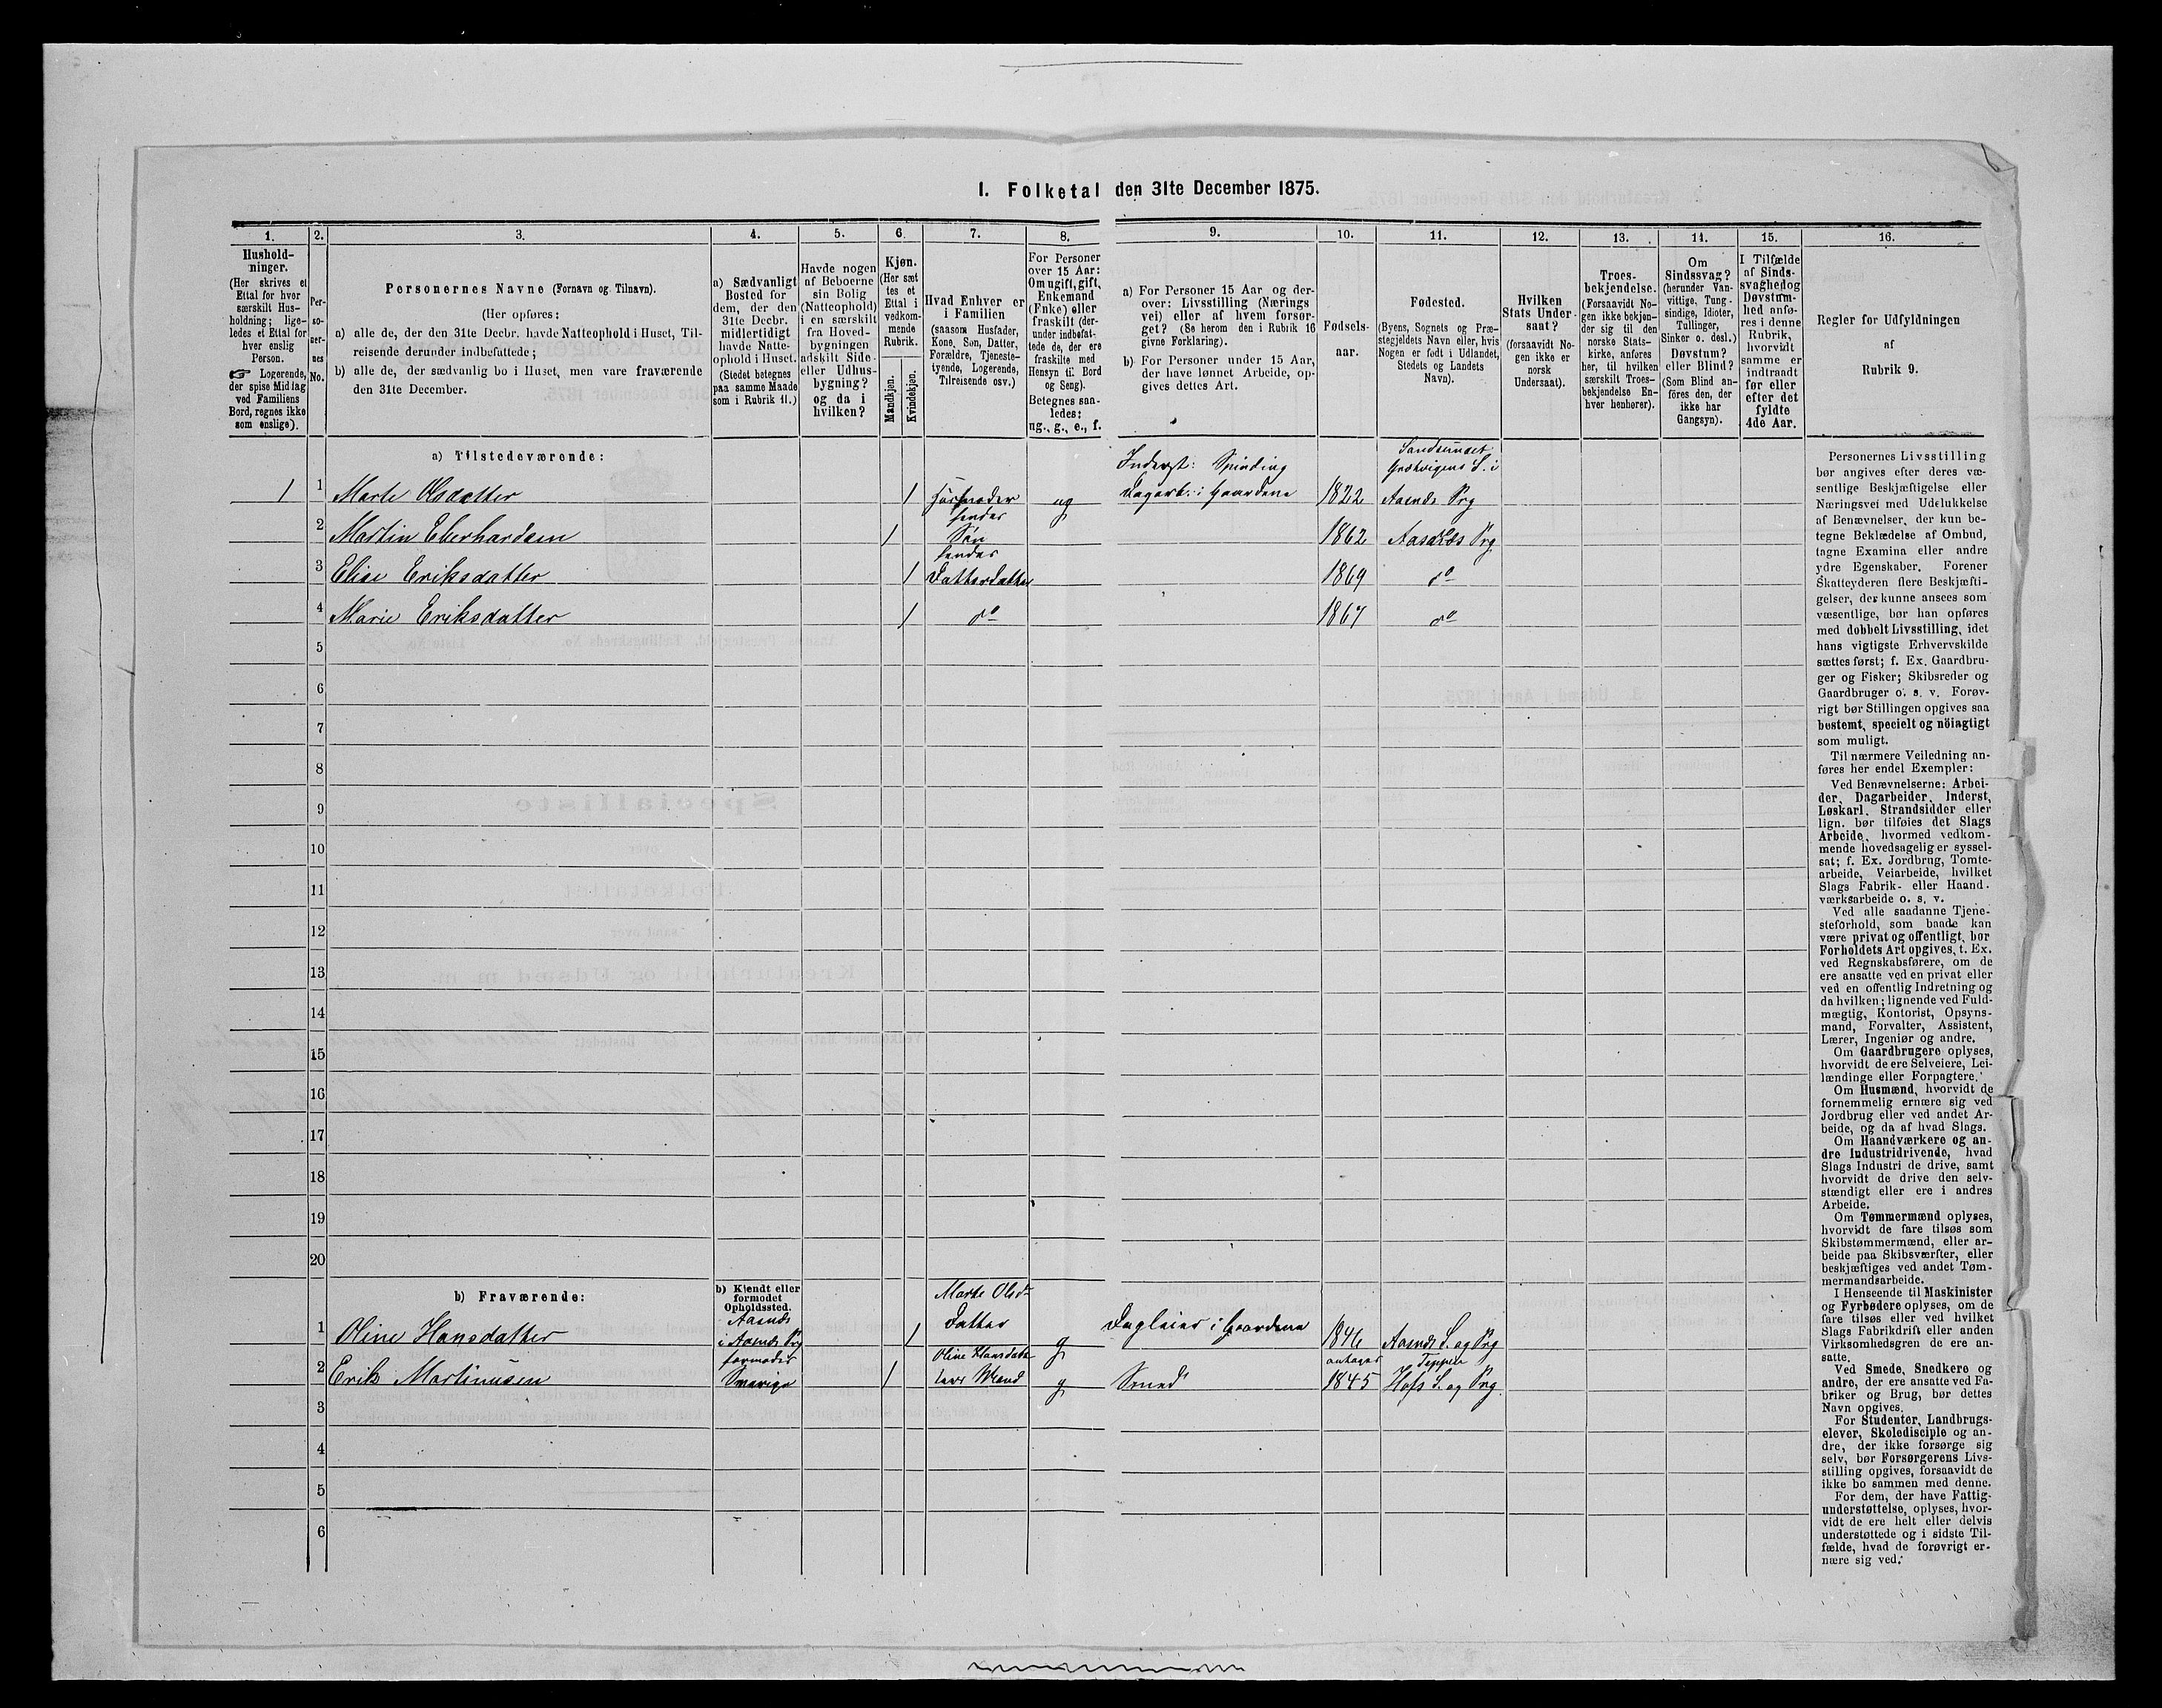 1. Folketal den 31te December 1875.
1. 2. 3. 4. 5. 6. 7. 8. 9. 10. 11. 12. 13. 14. 15. 16.
Hushold-
ninger.
(Her skrives et
Ettal for hver
særskilt Hus-
holdning; lige-
ledes et Ettal for
hver enslig
Person.
☞ Logerende,
der spise Middag
ved Familiens
Bord, regnes ikke
som enslige).
Per-
so-
ner-
nes
No.
Personernes Navne (Fornavn og Tilnavn).
(Her opføres:
a) alle de, der den 31te Decbr. havde Natteophold i Huset, Til-
reisende derunder indbefattede;
b) alle de, der sædvanlig bo i Huset, men vare fraværende
den 31te December.
a) Sædvanligt
Bosted for
dem, der den
31te Decbr.
midlertidigt
havde Natte-
ophold i Huset.
(Stedet betegnes
paa samme Maade
som i Rubrik 11.)
Havde nogen
af Beboerne
sin Bolig
(Natteophold)
i en særskilt
fra Hoved-
bygningen
adskilt Side-
eller Udhus-
bygning?
og da i
hvilken?
Kjøn.
(Her sæt
tes et
Ettal i
vedkom-
mende
Rubrik.
Mandkjøn.
Kvindekjøn.
Hvad Enhver er
i Familien
(saasom Husfader,
Kone, Søn, Datter,
Forældre, Tjeneste-
tyende, Logerende,
Tilreisende osv.)
For Personer
over 15 Aar:
Om ugift, gift,
Enkemand
(Enke) eller
fraskilt (der-
under indbefat-
tede de, der ere
fraskilte med
Hensyn til Bord
og Seng).
Betegnes saa-
ledes:
ug., g., e., f.
a) For Personer 15 Aar og der-
over: Livsstilling (Nærings
vei) eller af hvem forsør-
get? (Se herom den i Rubrik 16
givne Forklaring).
b) For Personer under 15 Aar,
der have lønnet Arbeide, op-
gives dettes Art.
Fødsels-
aar.
Fødested.
(Byens, Sognets og Præ-
stegjeldets Navn eller, hvis
Nogen er født i Udlandet,
Stedets og Landets
Navn).
Hvilken
Stats Under-
saat?
(forsaavidt No-
gen ikke er
norsk
Undersaat).
Troes-
bekjendelse.
(Forsaavidt No-
gen ikke bekjen-
der sig til den
norske Stats-
kirke, anføres
her, til hvilken
særskilt Troes-
bekjendelse En-
hver henhører).
Om
Sindssvag?
(herunder Van-
vittige, Tung-
sindige, Idioter,
Tullinger,
Sinker o. desl.)
Døvstum?
eller Blind?
(Som Blind an-
føres den, der
ikke har
Gangsyn).
I Tilfælde
af Sinds-
svaghed og
Døvstum-
hed anfø-
res i denne
Rubrik,
hvorvidt
samme er
indtraadt
før eller
efter det
fyldte
4de Aar.
Regler for Udfyldningen
af
Rubrik 9.
a) Tilstedeværende:
1 1 Marte Olsdatter 1 Husmoder ug Inderst: Spinding Dagarb. i Gaardene 1822 Sandsundet S. i Aasnes Prg
2 Martin Eberhardsen 1 hendes Søn 1862 Aasnes Prg
3 Elise Eriksdatter 1 hendes Datterdatter 1869 do
4 Marie Eriksdatter 1 do 1867 do
5
6
7
8
9
10
11
12
13
14
15
16
17
18
19
20
b) Fraværende:
b) Kjendt eller
formodet
Opholdssted.
1 Oline Hansdatter Aasnes i Aasnes Prg 1 Marte Olsd. Datter g Dagleier i Gaardene 1846 Aasnes S. og Prg
2 Erik Martinusen formodes Sverige 1 Oline Hansdatters Mand g Smed antages 1845 Hofs S. og Prg.
3
4
5
6
Personernes Livsstilling
bør angives efter deres væ-
sentlige Beskjæftigelse eller
Næringsvei med Udelukkelse
af Benævnelser, der kun be-
tegne Beklædelse af Ombud,
tagne Examina eller andre
ydre Egenskaber. Forener
Skatteyderen flere Beskjæfti-
gelser, der kunne ansees som
væsentlige, bør han opføres
med dobbelt Livsstilling, idet
hans vigtigste Erhvervskilde
sættes først; f. Ex. Gaardbru-
ger og Fisker; Skibsreder og
Gaardbruger o. s. v. Forøv-
rigt bør Stillingen opgives saa
bestemt, specielt og nöiagtigt
som muligt.
Til nærmere Veiledning an-
føres her endel Exempler:
Ved Benævnelserne: Arbei-
der, Dagarbeider, Inderst,
Løskarl, Strandsidder eller
lign. bør tilføies det Slags
Arbeide, hvormed vedkom-
mende hovedsagelig er syssel-
sat; f. Ex. Jordbrug, Tomte-
arbeide, Veiarbeide, hvilket
Slags Fabrik- eller Haand-
værksarbeide o. s. v.
Ved alle saadanne Tjene-
steforhold, som baade kan
være privat og offentligt, bør
Forholdets Art opgives, t. Ex.
ved Regnskabsførere, om de
ere ansatte ved en privat eller
ved en offentlig Indretning og
da hvilken; lignende ved Fuld-
mægtig, Kontorist, Opsyns-
mand, Forvalter, Assistent,
Lærer, Ingeniør og andre.
Om Gaardbrugere oplyses,
hvorvidt de ere Selveiere, Lei-
lændinge eller Forpagtere.
Om Husmænd, hvorvidt de
fornemmelig ernære sig ved
Jordbrug eller ved andet Ar-
beide, og da af hvad Slags.
Om Haandværkere og an-
dre Industridrivende, hvad
Slags Industri de drive, samt
hvorvidt de drive den selv-
stændigt eller ere i andres
Arbeide.
Om Tømmermænd oplyses,
hvorvidt de fare tilsøs som
Skibstømmermænd, eller ar-
beide paa Skibsværfter, eller
beskjæftiges ved andet Tøm-
mermandsarbeide.
I Henseende til Maskinister
og Fyrbødere oplyses, om de
fare tilsøs eller ved hvilket
Slags Fabrikdrift eller anden
Virksomhedsgren de ere an-
satte.
Ved Smede, Snedkere og
andre, der ere ansatte ved Fa-
briker og Brug, bør dettes
Navn opgives.
For Studenter, Landbrugs-
elever, Skoledisciple og an-
dre, der ikke forsørge sig
selv, bør Forsørgerens Livs-
stilling opgives, forsaavidt de
ikke bo sammen med denne.
For dem, der have Fattig-
understøttelse, oplyses, hvor-
vidt de ere helt eller delvis
understøttede og i sidste Til-
fælde, hvad de forøvrigt er-
nære sig ved.